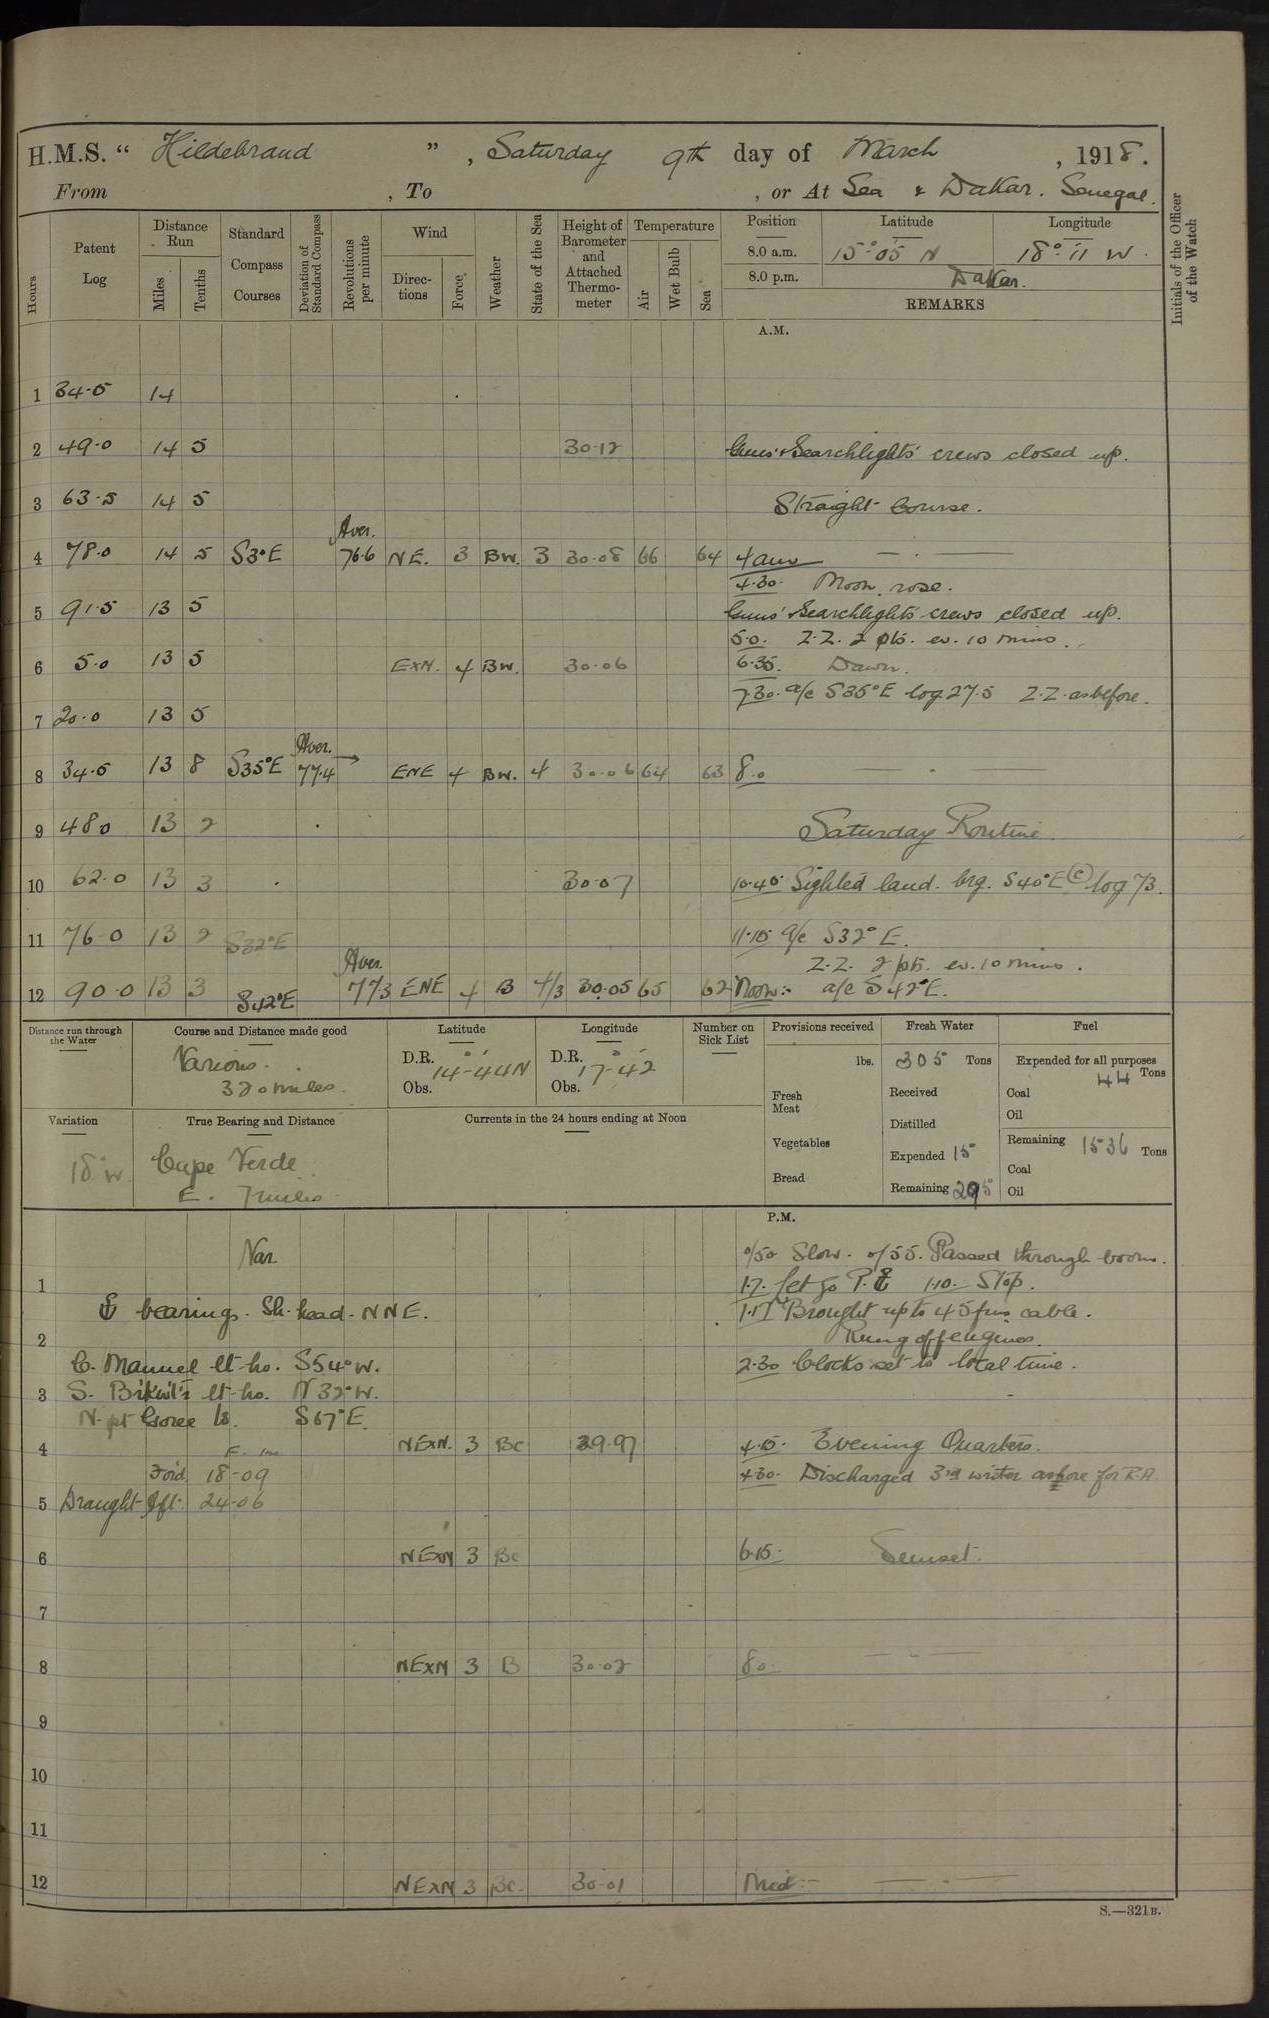 H.M.S. “ Hildebrand ” , Saturday 9th day of March , 1918.
From , To , or At Sea & Dakar. Senegal.
Hours
Patent Log
Distance Run
Miles
Tenths
Standard Compass Courses
Deviation of Standard Compass
Revolutions per minute
Wind
Directions
Force
Weather
State of the Sea
Height of Barometer and Attached Thermometer
Temperature
Air
Wet Bulb
Sea
Position Latitude Longitude
8.0 a.m. 15°-05 N 18°-11 W.
8.0 p.m. Dakar.
REMARKS
Initials of the Officer of the Watch
A.M.
1 34·5 14
2 49·0 14 5 30·12 Guns' & Searchlights' crews closed up.
3 63·5 14 5 Straight Course.
Aver.
4 78·0 14 5 S3°E 76·6 NE. 3 BW. 3 30·08 66 64 4 am
4·30. Moon rose.
5 91·5 13 5 Guns' & Searchlights' crews closed up.
5·0. Z.Z. 2 pts. ev. 10 mins.
6 5·0 13 5 ExN. 4 BW. 30·06 6·35. Dawn.
7·30. a/c S35°E log 27·5 Z.Z. as before.
7 20·0 13 5
Aver.
8 34·5 13 8 S35°E 77·4 → ENE 4 BW. 4 30·06 64 63 8·0
9 48·0 13 2 Saturday Routine.
10 62·0 13 3 30·07 10·40 Sighted land. brg. S40°E (c) log 73.
11 76·0 13 2 S32°E 11·15 a/c S32°E.
Z.Z. 2 pts. ev. 10 mins.
Aver.
12 90·0 13 3 S42°E 77·3 ENE 4 B 4/3 30·05 65 62 Noon:- a/c S42°E.
Distance run through the Water
Course and Distance made good
Various.
320 miles.
Latitude
D.R. 14-44N
Obs.
Longitude
D.R. 17-42
Obs.
Number on Sick List
Provisions received
lbs.
Fresh Meat
Vegetables
Bread
Fresh Water
305 Tons
Received
Distilled
Expended 15
Remaining 295
Fuel
Expended for all purposes
44 Tons
Coal
Oil
Remaining 1536 Tons
Coal
Oil
Variation
18°W.
True Bearing and Distance
Cape Verde
E. 7 miles.
Currents in the 24 hours ending at Noon
P.M.
Var. 0/50 Slow. 0/55. Passed through boom.
1 1·7. Let go P. ⚓ 1·10. Stop.
⚓ bearings. Sh. head. NNE. 1·17 Brought up to 45 fms cable.
2 Rung off engines.
C. Manuel lt-ho. S54°W. 2·30 Clocks set to local time.
3 S. lt-ho. N32°W.
N. pt Goree Is. S67°E.
4 NExN. 3 Bc 29·97 4·15. Evening Quarters.
F. ins
Ford. 18-09 4·30. Discharged 3rd writer ashore for R.A.
5 Draught Aft. 24-06
6 NExN 3 Bc 6·15. Sunset.
7
8 NExN 3 B 30·02 8·0.
9
10
11
12 NExN 3 Bc. 30·01 Mid:-
S.—321B.